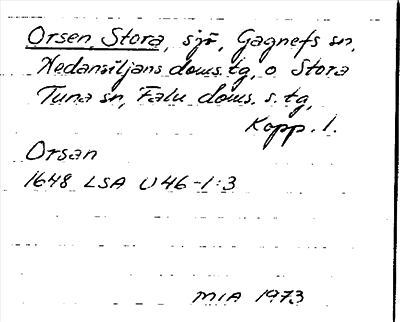 Orsen, Stora, sjö, Gagnefs sn,
Nedansiljans doms. tg, o. Stora
Tuna sn, Falu doms. s. tg,
Kopp. l.
Orsan
1648 LSA U46-1:3
MIA 1973